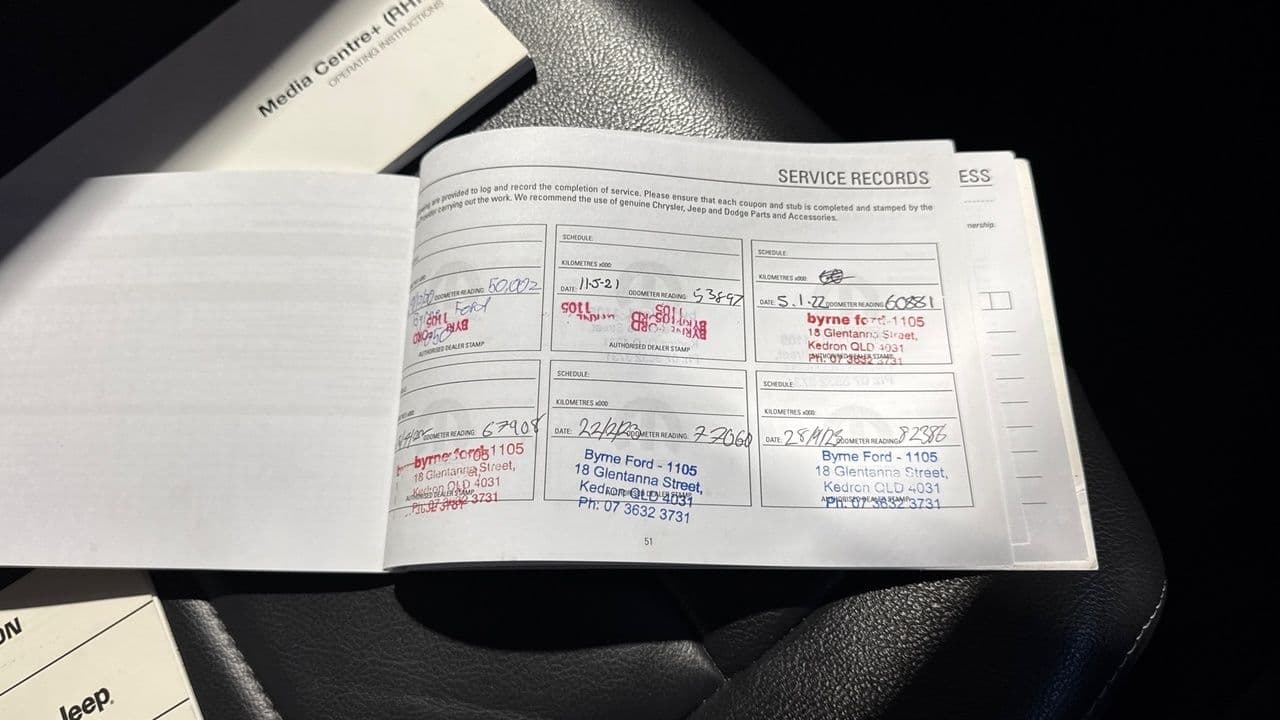 Media Centre+ (RH
OPERATING INSTRUCTIONS
SERVICE RECORDS
ESS
are provided to log and record the completion of service. Please ensure that each coupon and stub is completed and stamped by the
carrying out the work. We recommend the use of genuine Chrysler, Jeep and Dodge Parts and Accessories.
nership.
ODOMETER READING: 50,002
Ford
AUTHORISED DEALER STAMP
SCHEDULE:
KILOMETRES x000:
DATE: 11-5-21 ODOMETER READING: 53897
1105
BYRNE FORD
AUTHORISED DEALER STAMP
SCHEDULE:
KILOMETRES x000:
DATE: 5.1.22 ODOMETER READING: 60881
byrne ford-1105
18 Glentanna Street,
Kedron QLD 4031
AUTHORISED DEALER STAMP
Ph: 07 3632 3731
ODOMETER READING: 67908
byrne ford 1105
18 Glentanna Street,
Kedron QLD 4031
07 3632 3731
SCHEDULE:
KILOMETRES x000:
DATE: ODOMETER READING: 77060
Byrne Ford - 1105
18 Glentanna Street,
Kedron QLD 4031
AUTHORISED DEALER STAMP
Ph: 07 3632 3731
SCHEDULE:
KILOMETRES x000:
DATE: ODOMETER READING: 82386
Byrne Ford - 1105
18 Glentanna Street,
Kedron QLD 4031
AUTHORISED DEALER STAMP
Ph: 07 3632 3731
51
ON
Jeep